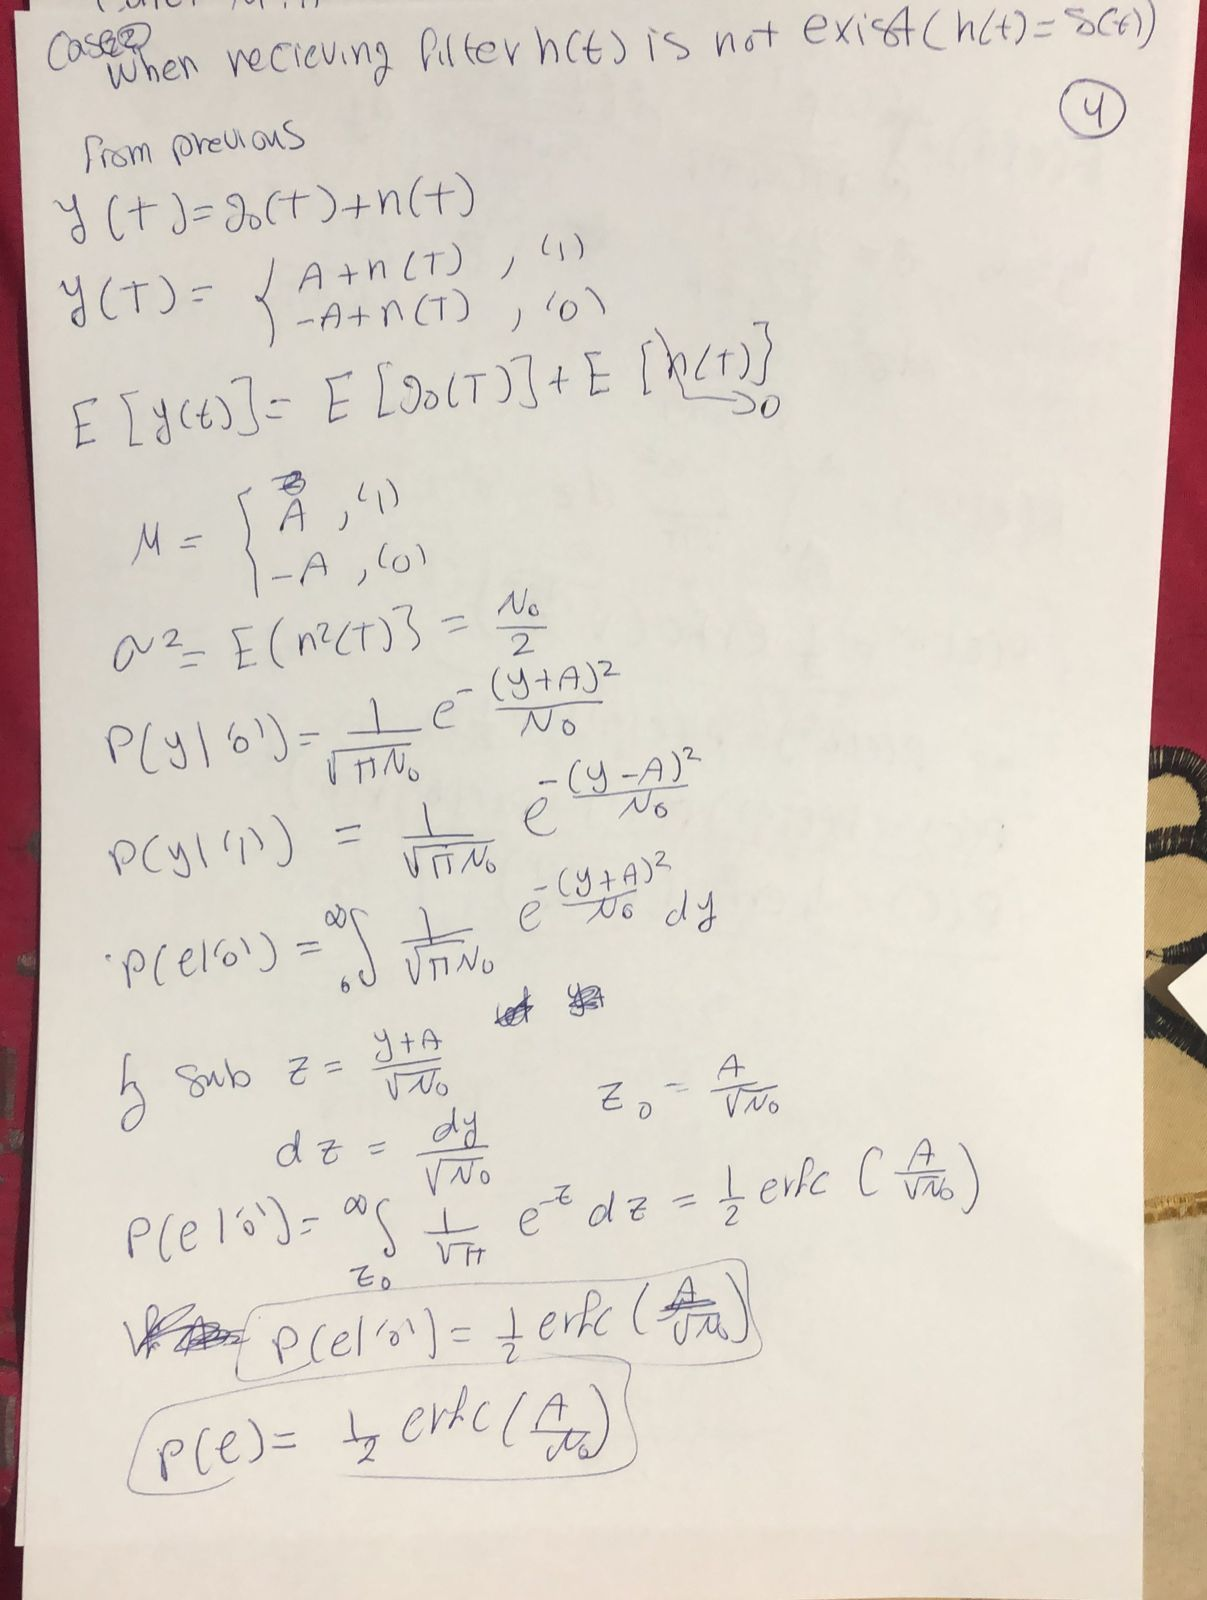 Case2
When recieving filter h(t) is not exist (h(t)=δ(t))
4
from previous
y(T)=g₀(T)+n(T)
y(T)= { A+n(T) , '1'
-A+n(T) , '0'
E[y(t)]= E[g₀(T)]+E[n(T)] → 0
M = { A , '1'
-A , '0'
σ²= E(n²(T)} = N₀/2
P(y|'0')= 1/√πN₀ e^-(y+A)²/N₀
P(y|'1') = 1/√πN₀ e^-(y-A)²/N₀
P(e|'0') = ₀∫^∞ 1/√πN₀ e^-(y+A)²/N₀ dy
by sub z = y+A/√N₀ z₀ = A/√N₀
dz = dy/√N₀
P(e|'0')= ∞∫z₀ 1/√π e^-z dz = 1/2 erfc (A/√N₀)
P(e|'0')= 1/2 erfc (A/√N₀)
P(e)= 1/2 erfc (A/√N₀)